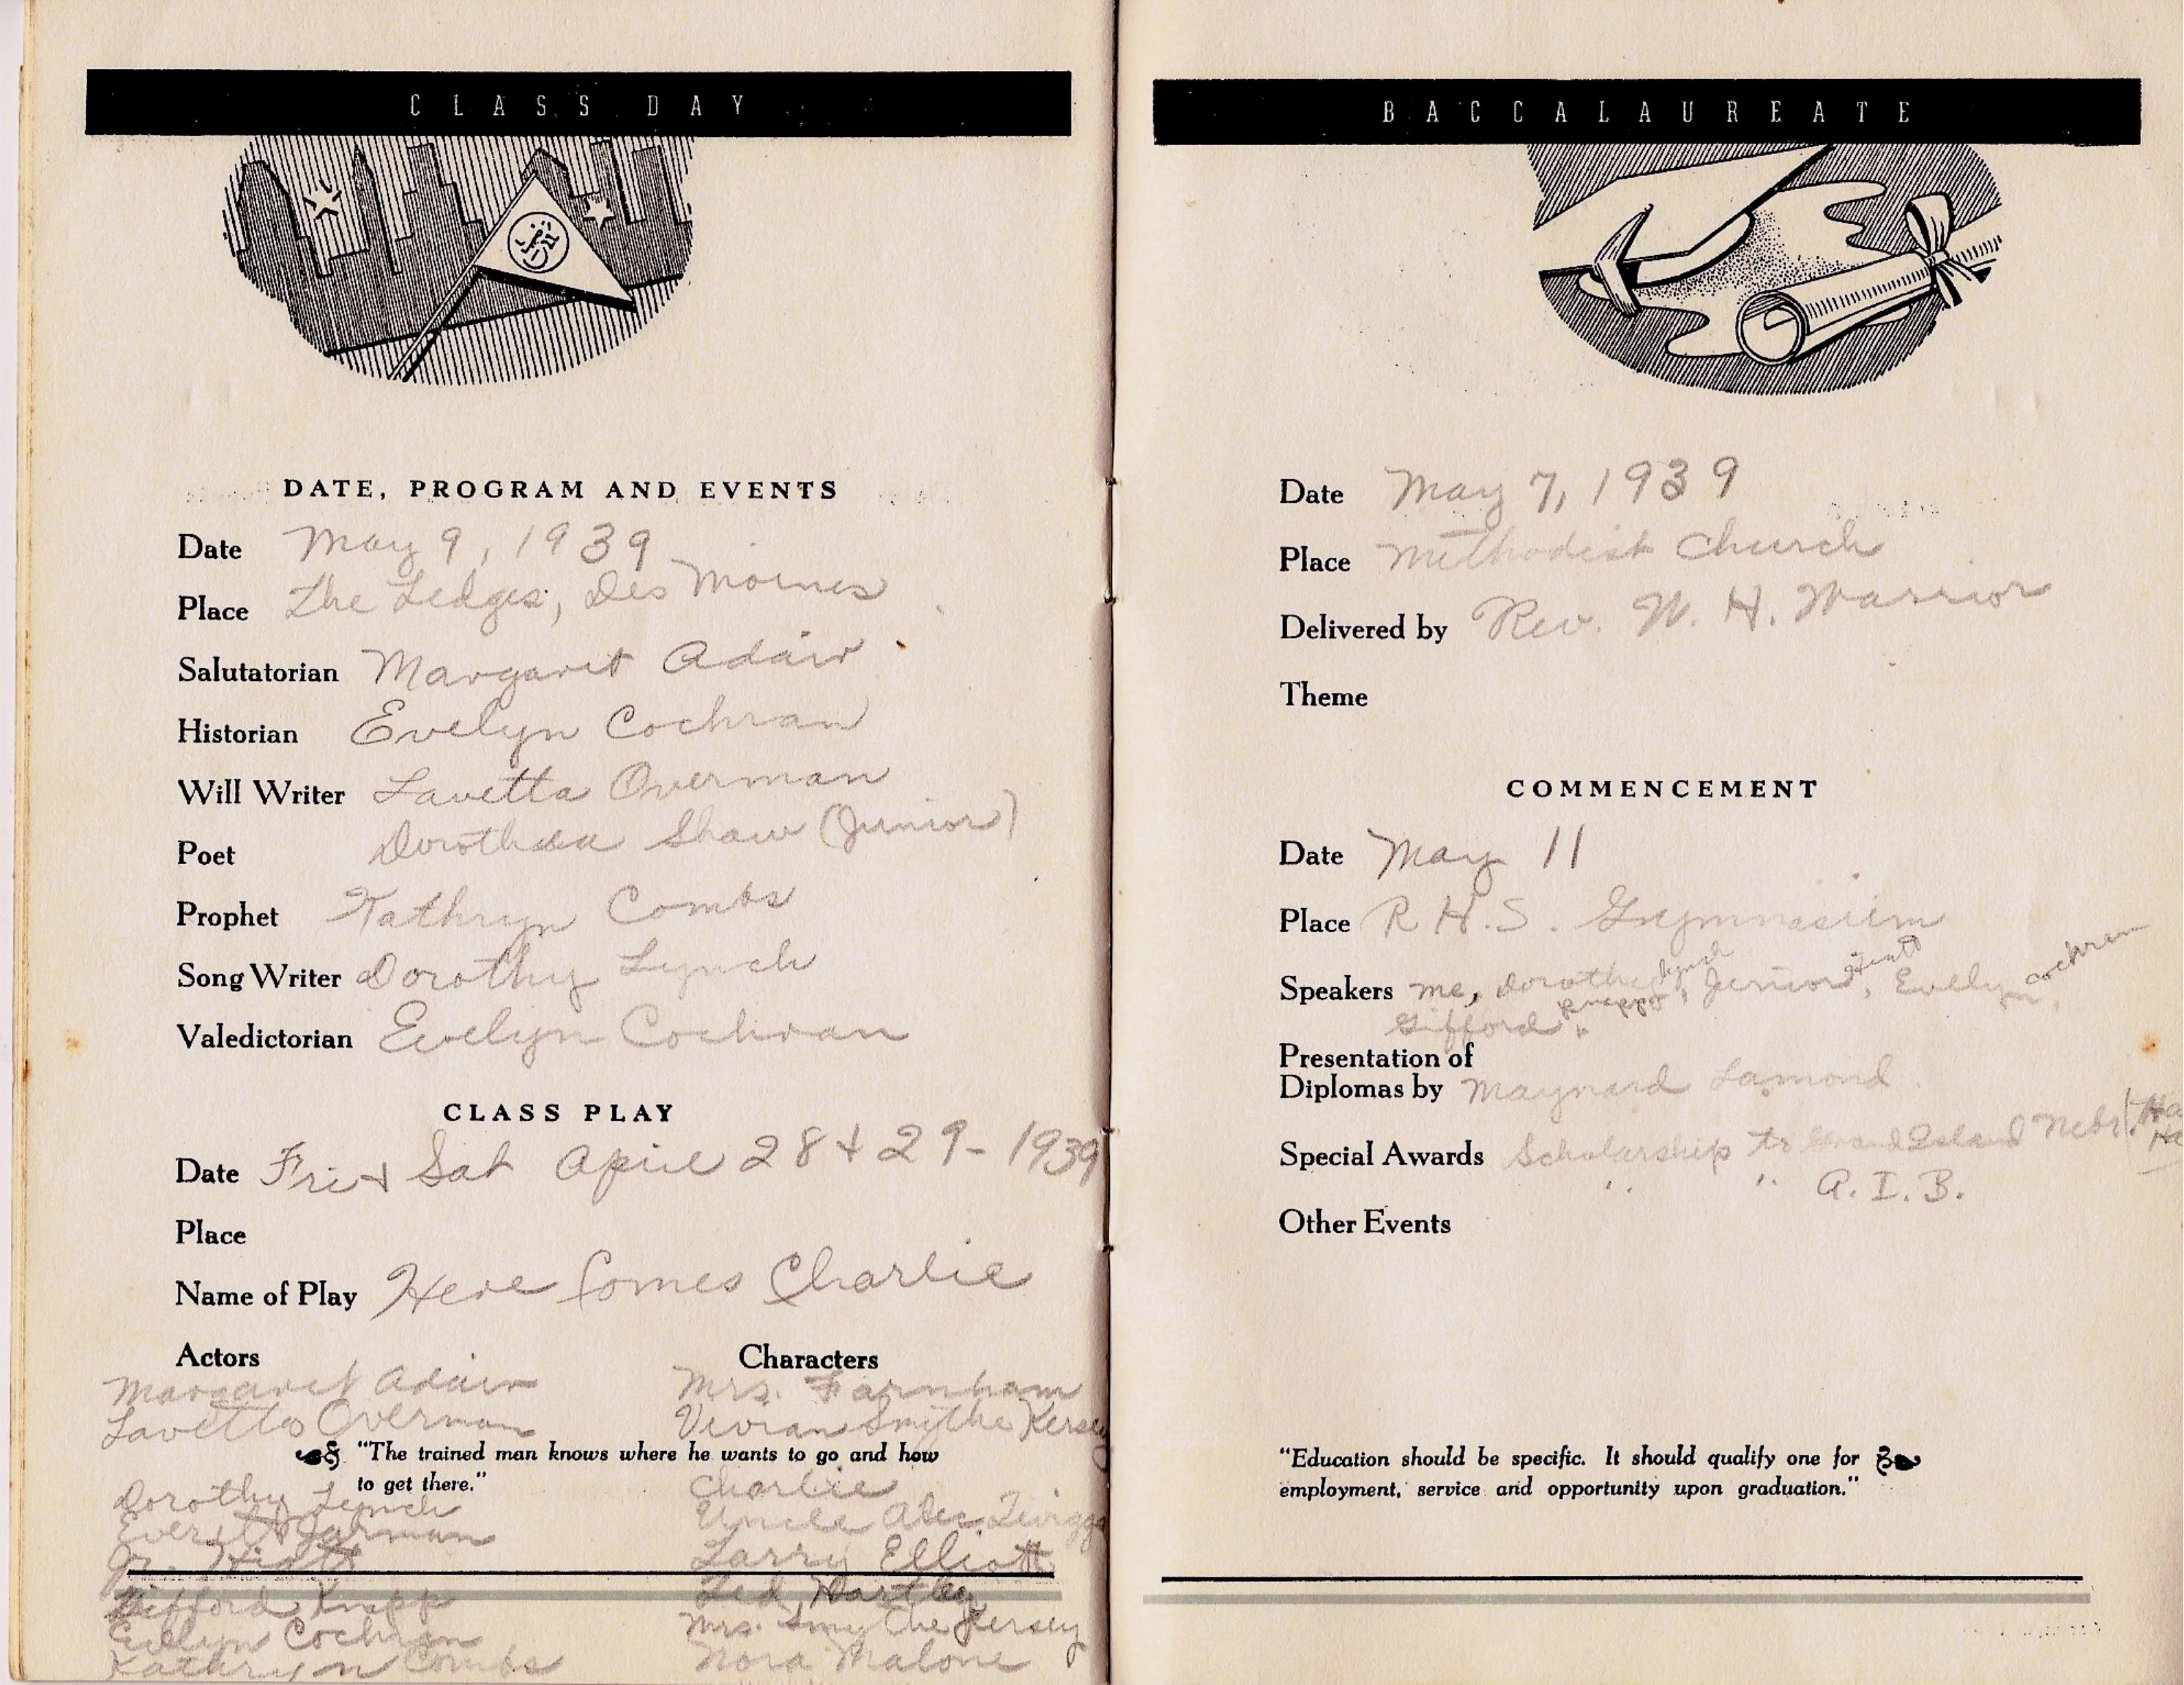 CLASS DAY
DATE, PROGRAM AND EVENTS
Date May 9, 1939
Place The Ledges, Des Moines
Salutatorian Margaret Adair
Historian Evelyn Cochran
Will Writer Lavetta Overman
Poet Dorothea Shaw (Junior)
Prophet Kathryn Combs
Song Writer Dorothy Lynch
Valedictorian Evelyn Cochran
CLASS PLAY
Date Fri + Sat April 28 + 29 - 1939
Place
Name of Play Here Comes Charlie
Actors Characters
Margaret Adair Mrs. Farnham
Lavetta Overman Vivian Smythe Kersey
"The trained man knows where he wants to go and how
to get there."
Dorothy Lynch Charlie
Everett Jarman Uncle Alec Twiggs
Jr. Hiatt Larry Elliott
Gifford Knapp Ted Hartley
Evelyn Cochran Mrs. Smythe Kersey
Kathryn Combs Nora Malone
BACCALAUREATE
Date May 7, 1939
Place Methodist Church
Delivered by Rev. W. H. Warrior
Theme
COMMENCEMENT
Date May 11
Place R.H.S. Gymnasium
Speakers me, Dorothy Lynch, Junior Hiatt, Evelyn Cochran,
Gifford Knapp
Presentation of
Diplomas by Maynard Lamond
Special Awards Scholarship to Grand Island Nebr.
" " A.I.B.
Other Events
"Education should be specific. It should qualify one for
employment, service and opportunity upon graduation."